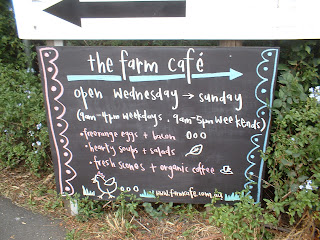 the farm café
open wednesday → sunday
(9am-4pm weekdays . 9am-5pm weekends)
• freerange eggs + bacon
• hearty soups + salads
• fresh scones + organic coffee
www.farmcafe.com.au